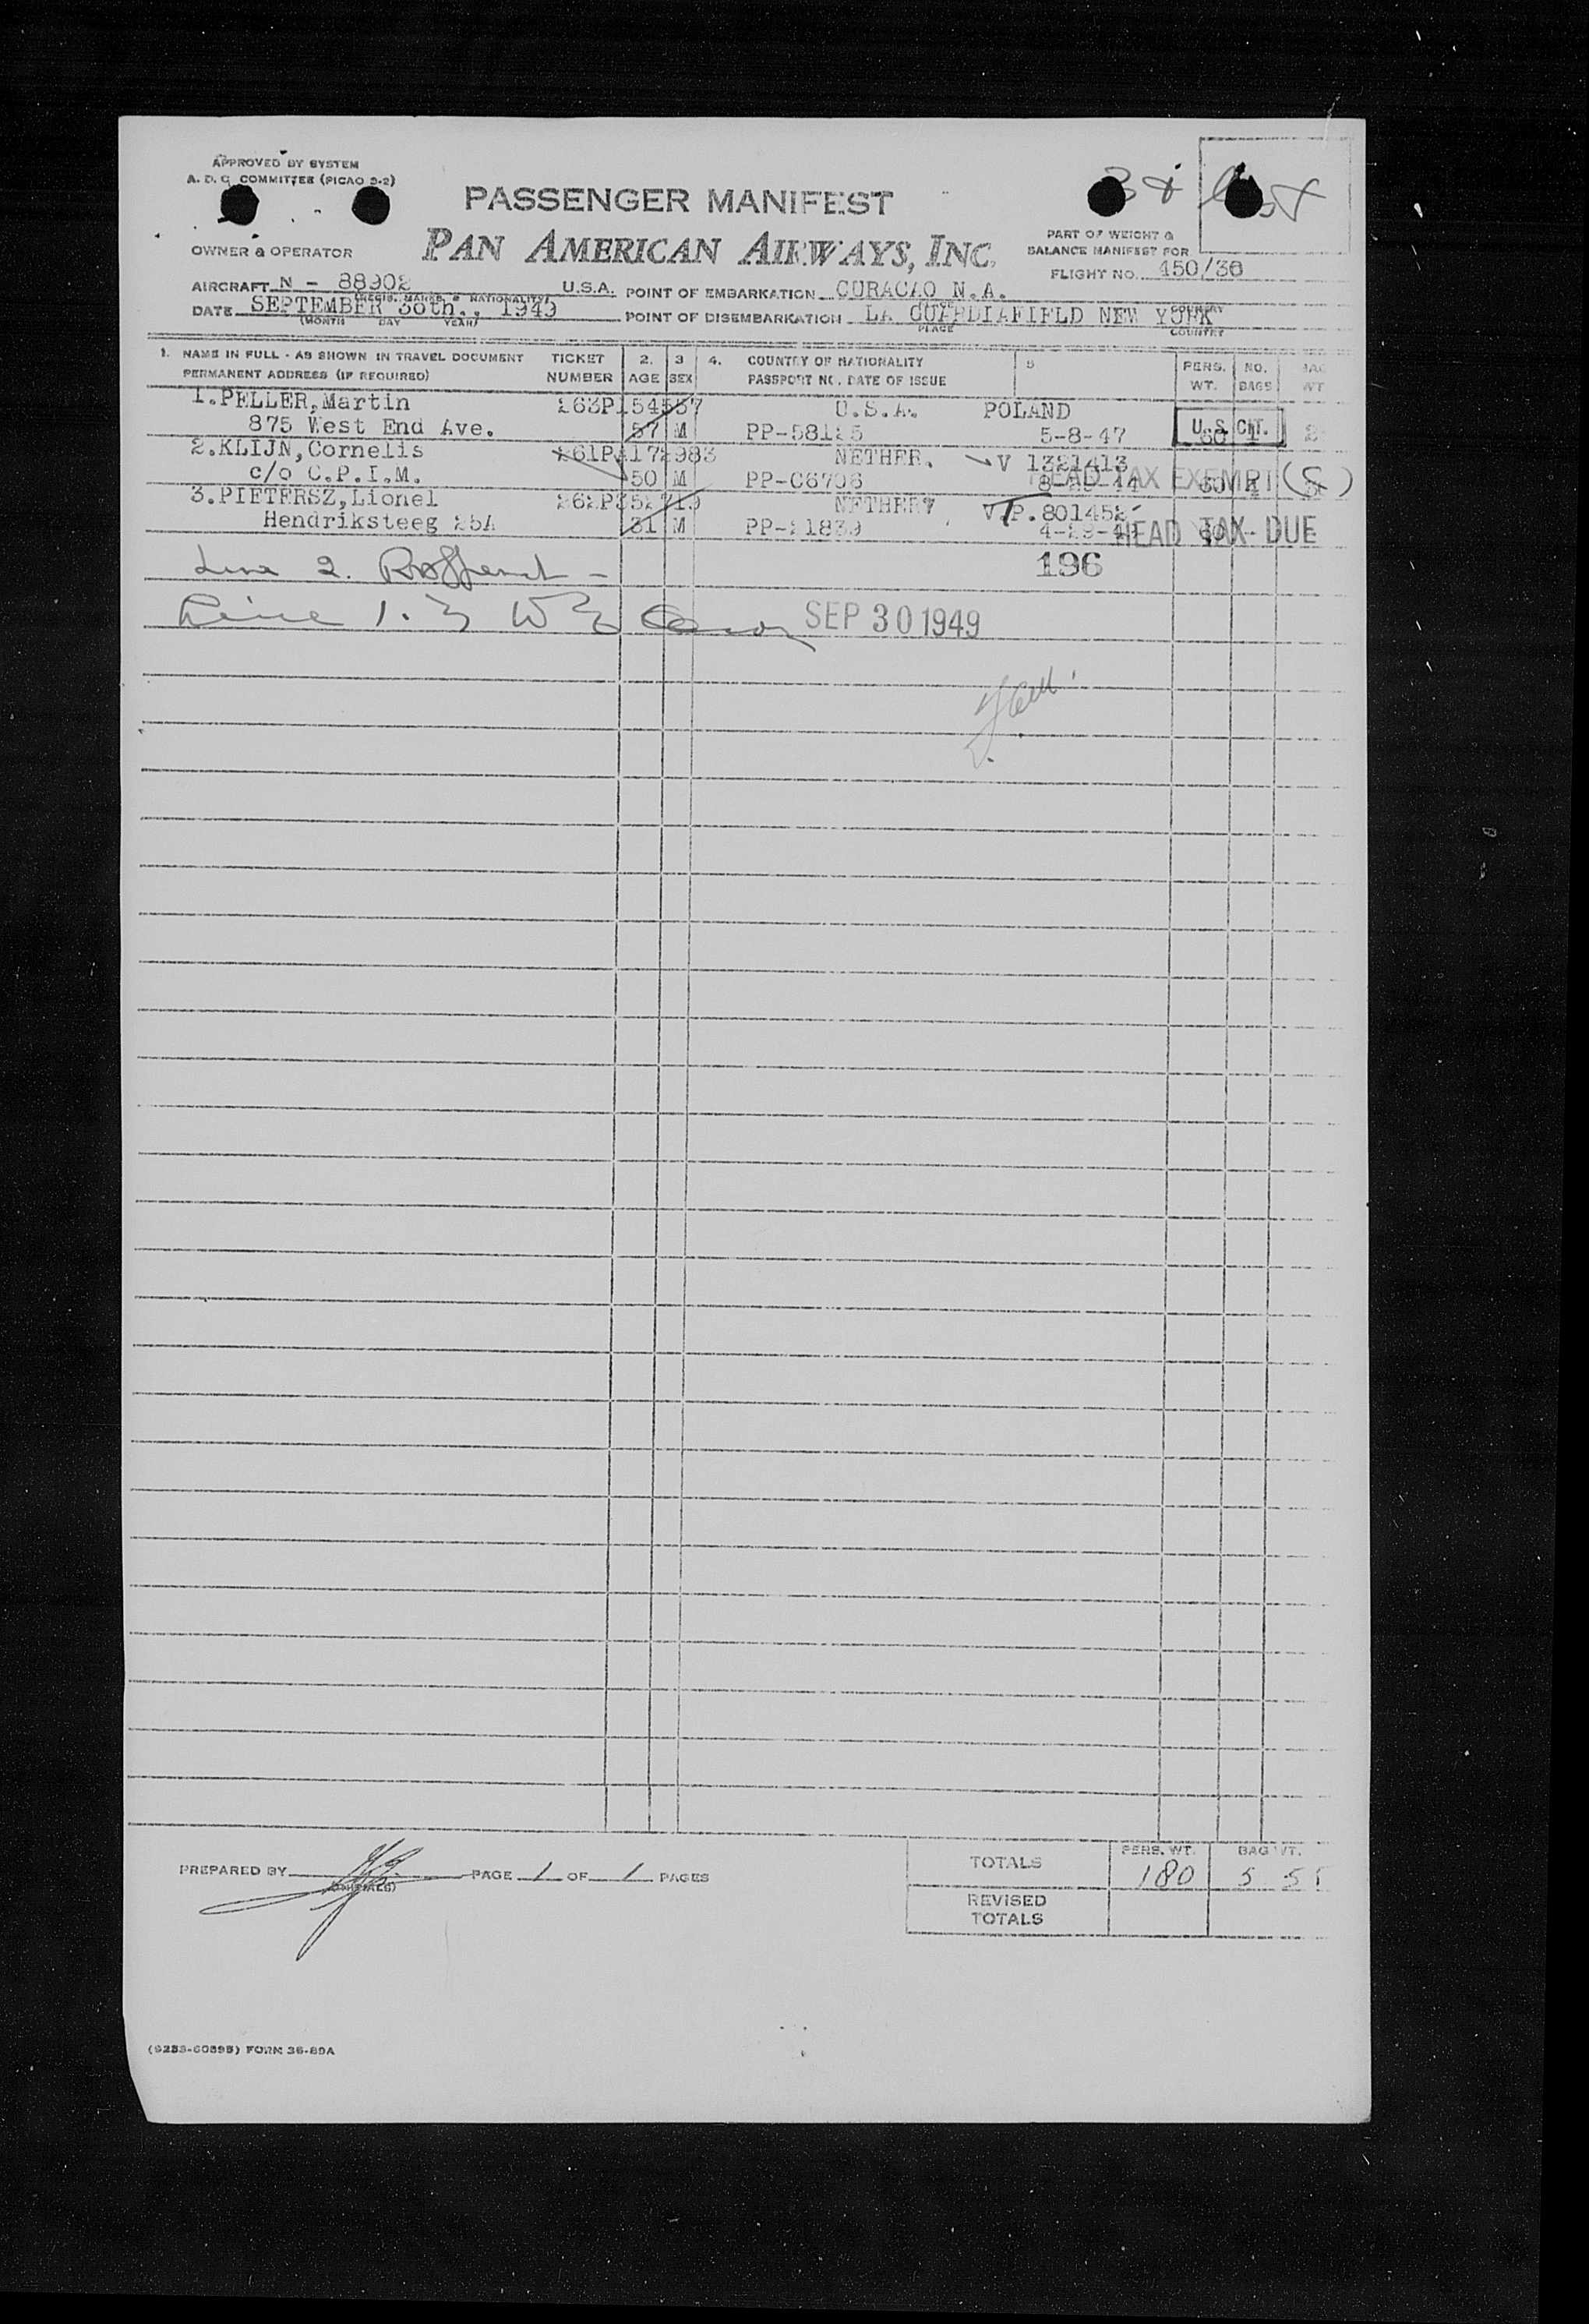 APPROVED BY SYSTEM
A. D. C. COMMITTEE (PICAO 9-2)
PASSENGER MANIFEST
OWNER & OPERATOR
PAN AMERICAN AIRWAYS, INC.
PART OF WEIGHT &
BALANCE MANIFEST FOR
FLIGHT NO. 450/30
AIRCRAFT N - 88902 U.S.A. POINT OF EMBARKATION CURACAO N.A.
(REGIS. MARKS & NATIONALITY)
DATE SEPTEMBER 30th., 1949 POINT OF DISEMBARKATION LA GUARDIAFIELD NEW YORK
(MONTH DAY YEAR) PLACE COUNTRY
1. NAME IN FULL - AS SHOWN IN TRAVEL DOCUMENT TICKET 2. 3 4. COUNTRY OF NATIONALITY 5 PERS. NO. BAG
PERMANENT ADDRESS (IF REQUIRED) NUMBER AGE SEX PASSPORT NO. DATE OF ISSUE WT. BAGS WT
1. PELLER, Martin 263P154557 U.S.A. POLAND
875 West End Ave. 57 M PP-58125 5-8-47 U. S. CIT.
2. KLIJN, Cornelis 261PA172983 NETHER. V 1321413
c/o C.P.I.M. 50 M PP-C6706 HEAD TAX EXEMPT
3. PIETERSZ, Lionel 262P352719 NETHER V P. 801452
Hendriksteeg 25A 31 M PP-21839 HEAD TAX DUE
Line 2. 196
Line 1. 3 SEP 30 1949
PREPARED BY PAGE 1 OF 1 PAGES
(INITIALS)
PERS. WT. BAG WT.
TOTALS 180 5 55
REVISED
TOTALS
(9253-60595) FORM 36-89A